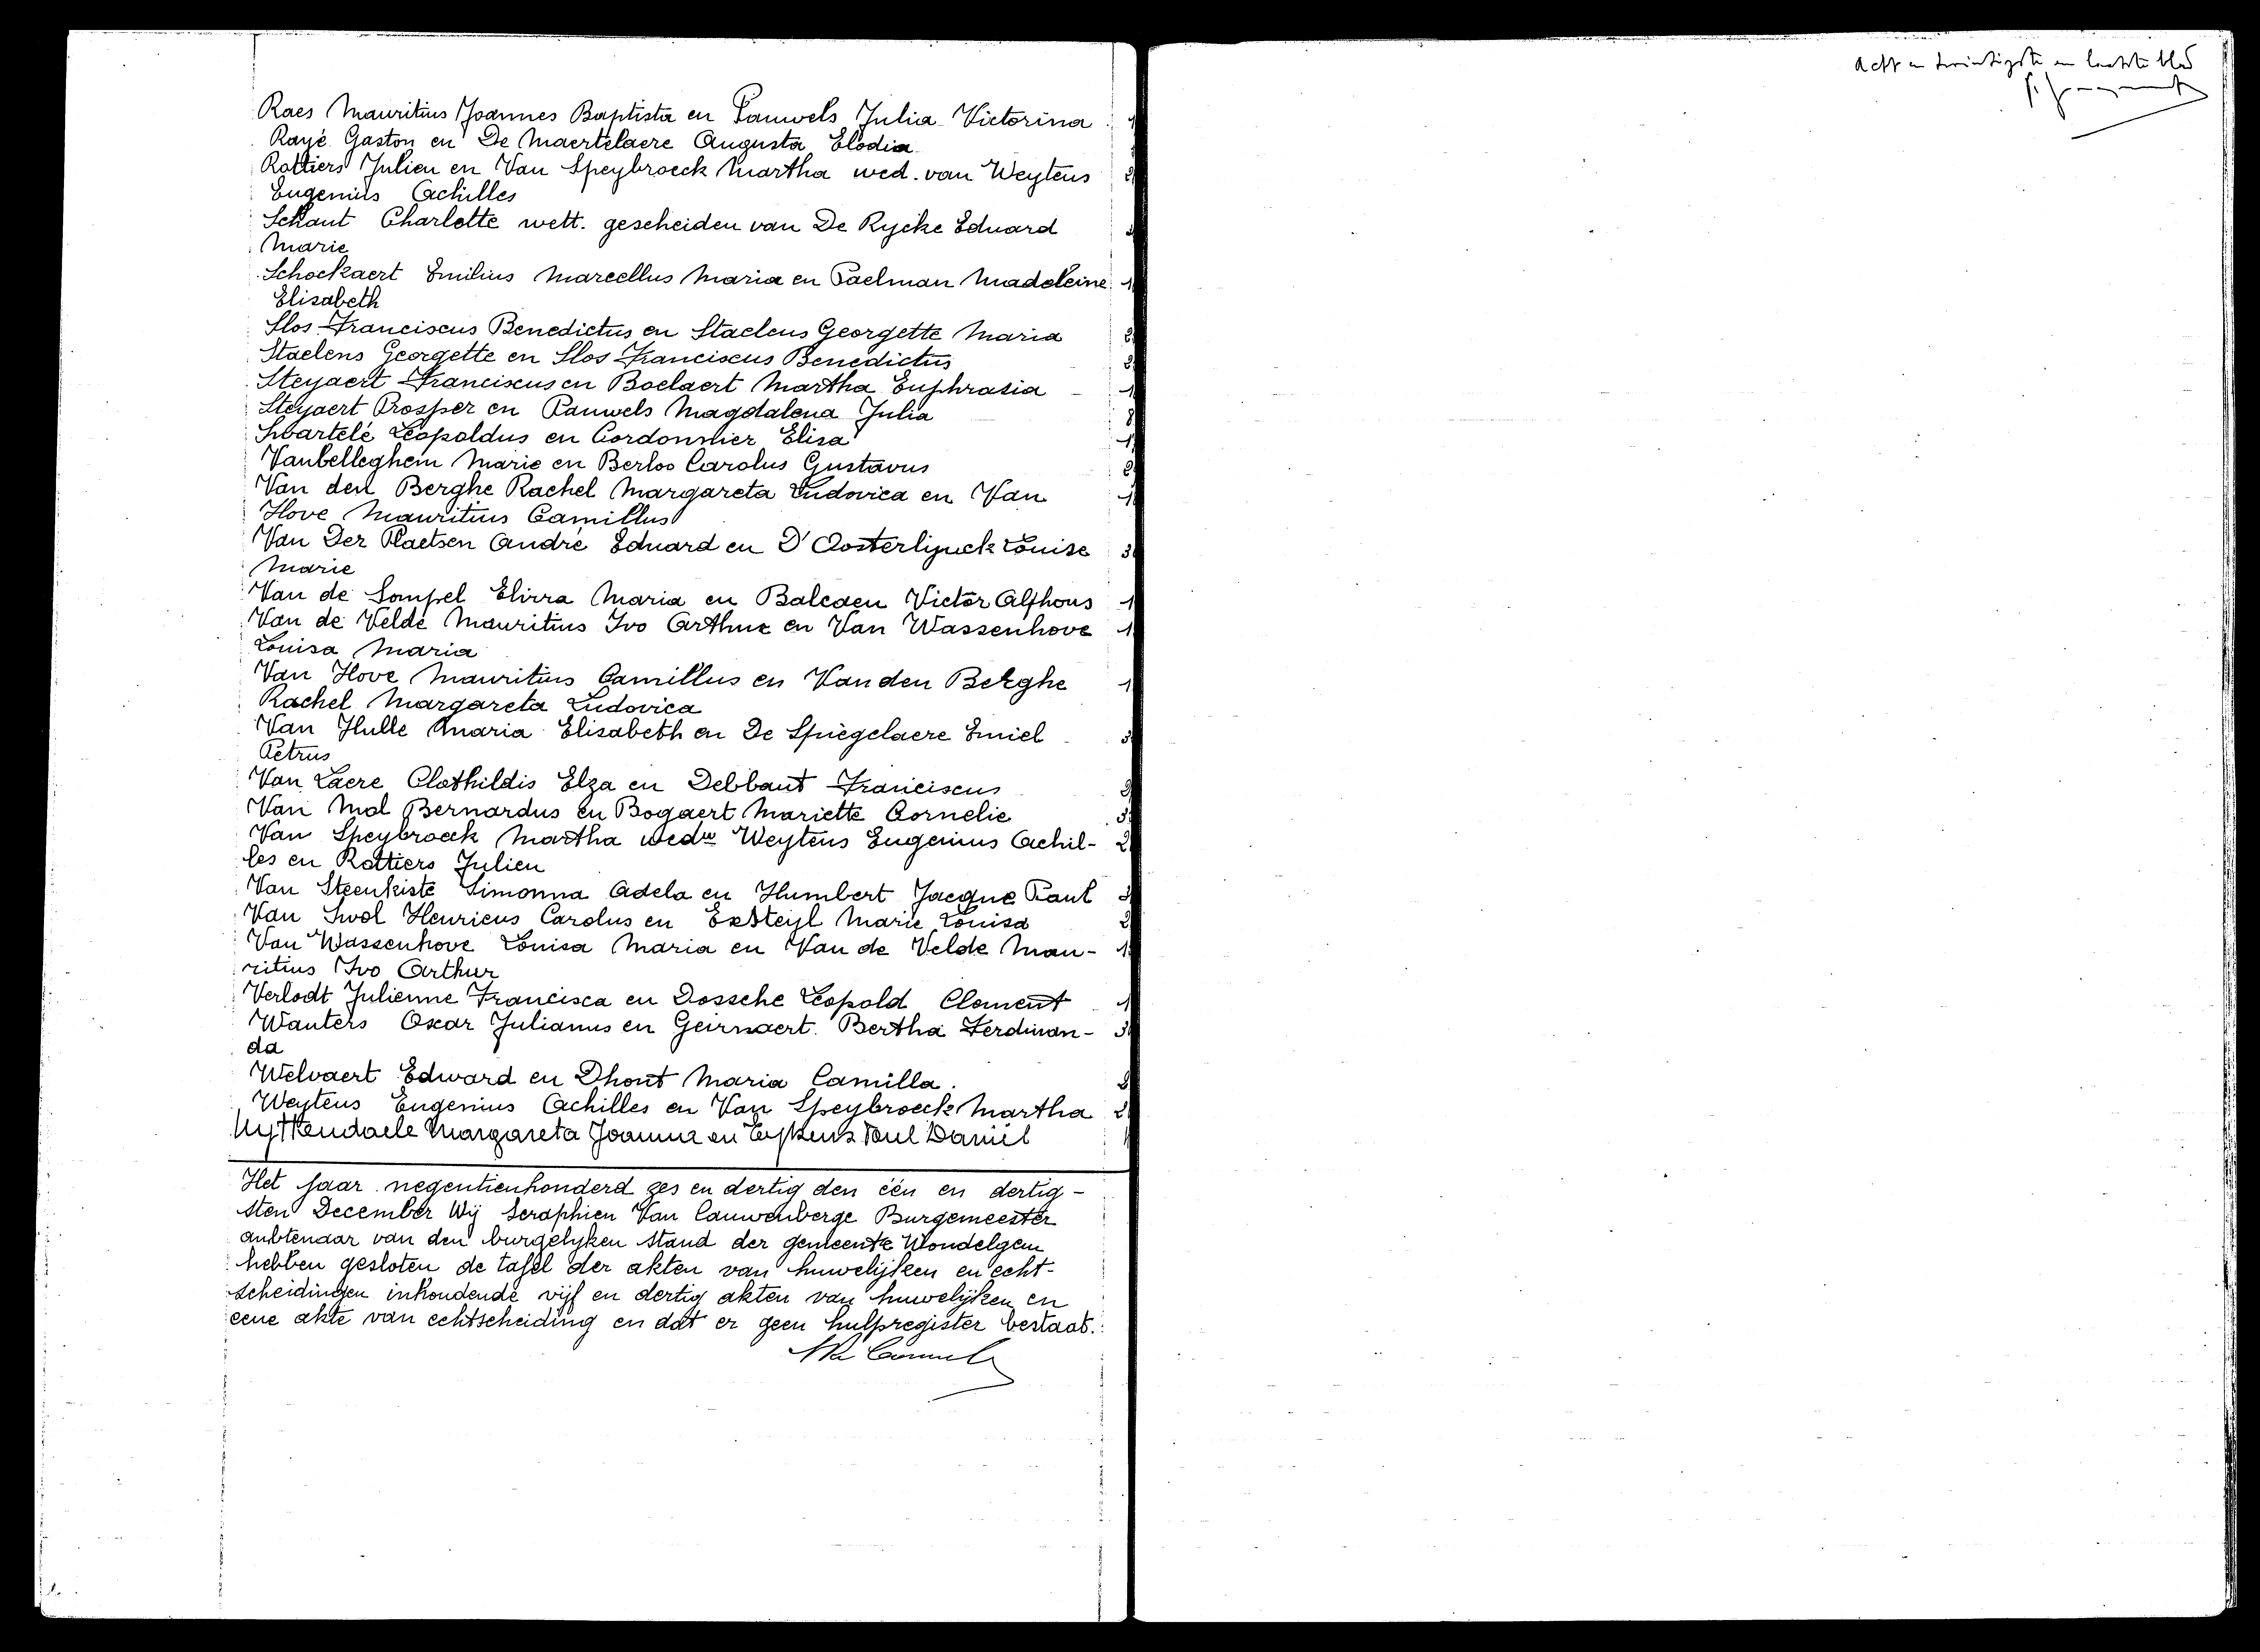 Raes Mauritius Joannes Baptista en Pauwels Julia Victorina
Rayé Gaston en De Maertelaere Augusta Elodia
Rottiers Julien en Van Speybroeck Martha wed. van Weytens
Eugenius Achilles
Schaut Charlotte wett. gescheiden van De Rycke Eduard
Marie
Schockaert Emilius Marcellus Maria en Paelman Madeleine 1
Elisabeth
Slos Franciscus Benedictus en Staelens Georgette Maria
Staelens Georgette en Slos Franciscus Benedictus
Steyaert Franciscus en Boelaert Martha Euphrasia
Steyaert Prosper en Pauwels Magdalena Julia
Swartelé Leopoldus en Cordonnier Elisa
Vanbelleghem Marie en Berloo Carolus Gustavus
Van den Berghe Rachel Margareta Ludovica en Van
Hove Mauritius Camillus
Van Der Plaetsen André Eduard en D'Oosterlijnck Louise 3
Marie
Van de Sompel Elvira Maria en Balcaen Victor Alfhons 1
Van de Velde Mauritius Ivo Arthur en Van Wassenhove 1
Louisa Maria
Van Hove Mauritius Camillus en Van den Berghe 1
Rachel Margareta Ludovica
Van Hulle Maria Elisabeth en De Spiegelaere Emiel
Petrus
Van Laere Clothildis Elza en Debbaut Franciscus
Van Mol Bernardus en Bogaert Mariette Cornelie 3
Van Speybroeck Martha wedw Weytens Eugenius Achil- 2
les en Rottiers Julien
Van Steenkiste Simonna Adela en Humbert Jacque Paul
Van Swol Henricus Carolus en Exsteyl Marie Louisa 2
Van Wassenhove Louisa Maria en Van de Velde Mau- 1
ritius Ivo Arthur
Verlodt Julienne Francisca en Dossche Leopold Clement 1
Wauters Oscar Julianus en Geirnaert Bertha Ferdinan- 3
da
Welvaert Edward en Dhont Maria Camilla.
Weytens Eugenius Achilles en Van Speybroeck Martha 2
Uyttendaele Margareta Joanna en Eyskens Paul Daniël
Het jaar negentienhonderd zes en dertig den één en dertig-
sten December Wij Seraphien Van Cauwenberge Burgemeester
ambtenaar van den burgelyken stand der gemeente Wondelgem
hebben gesloten de tafel der akten van huwelijken en echt-
scheidingen inhoudende vijf en dertig akten van huwelijken en
eene akte van echtscheiding en dat er geen hulpregister bestaat.
Acht en twintigste en laatste blad